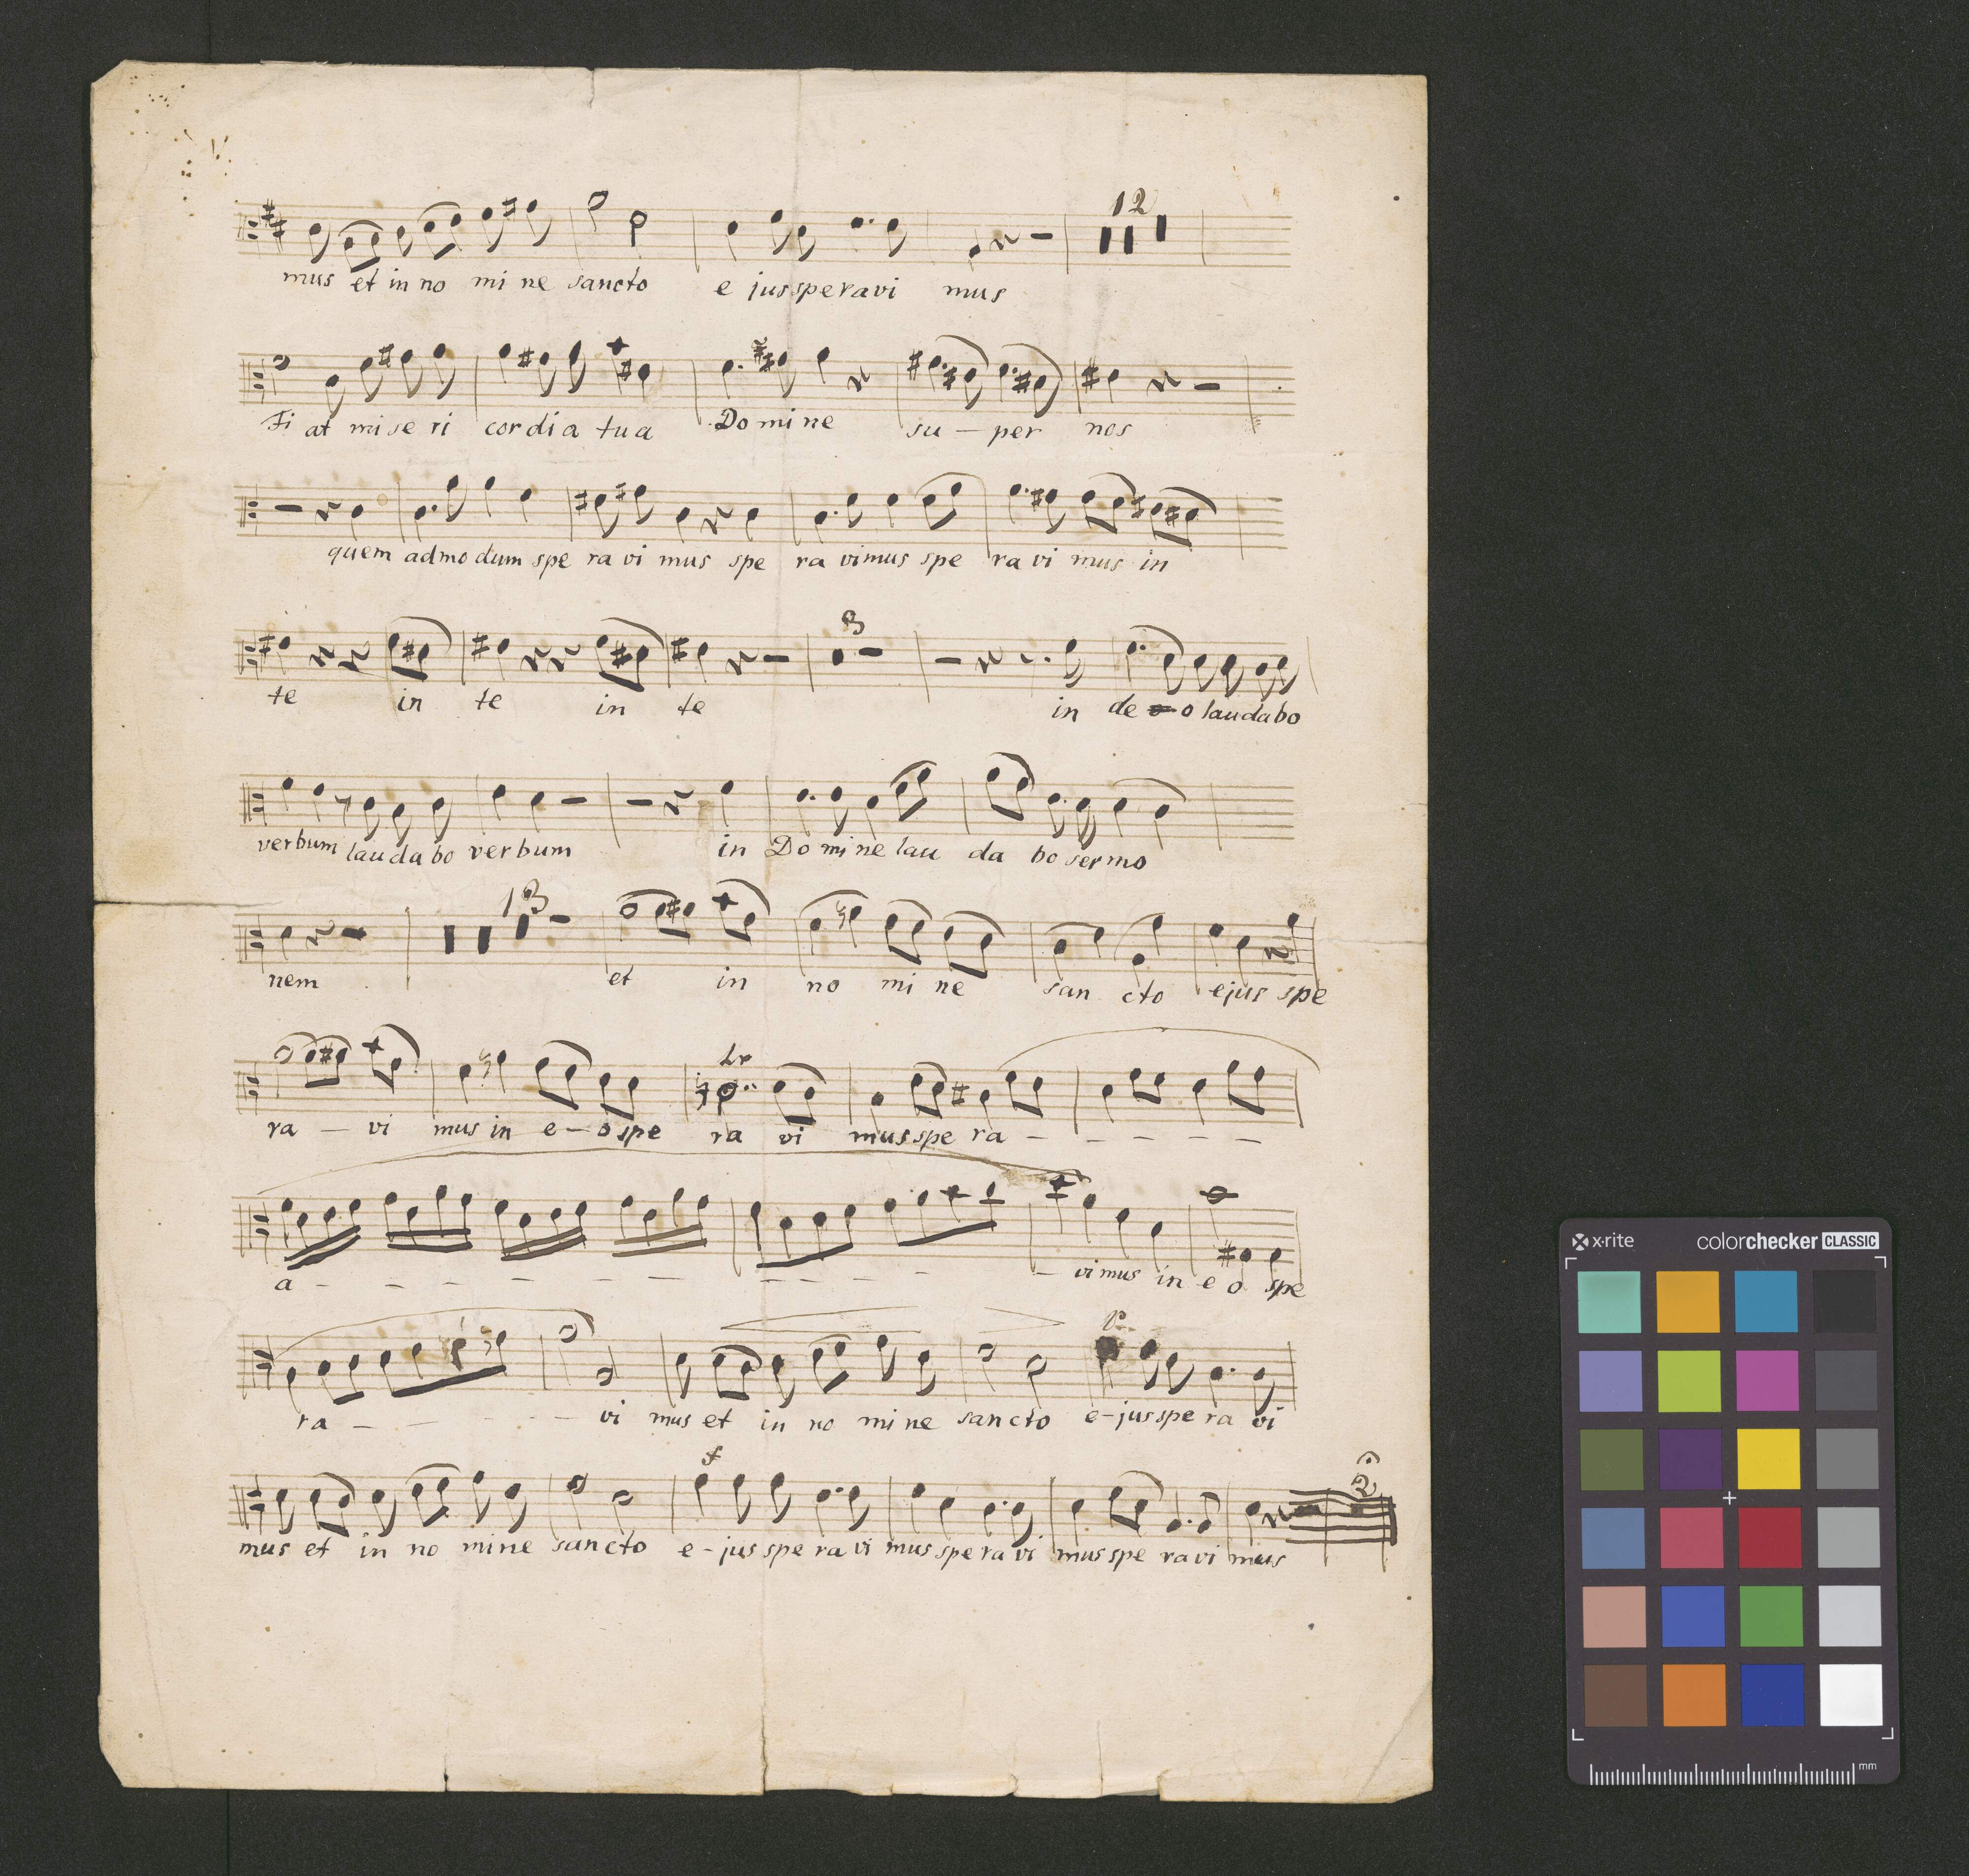 12
mus et in no mi ne sancto e jus speravi mus
Fi at mi se ri cor di a tu a Do mi ne su - per nos
quem ad mo dum spe ra vi mus spe ra vimus spe ra vi mus in
3
te in te in te in de o laudabo
verbum laudabo verbum in Do mi ne lau da bo sermo
13
nem et in no mi ne san cto ejus spe
tr
ra - vi mus in e - o spe ra vi mus spe ra - - - - -
a - - - - - - - - - - - - vi mus in e o spe
p
ra - - - - vi mus et in no mi ne sancto e - jus spe ra vi
f
2
mus et in no mine sancto e - jus spe ra vi mus spe ra vi mus spe ra vi mus
x·rite colorchecker CLASSIC
mm